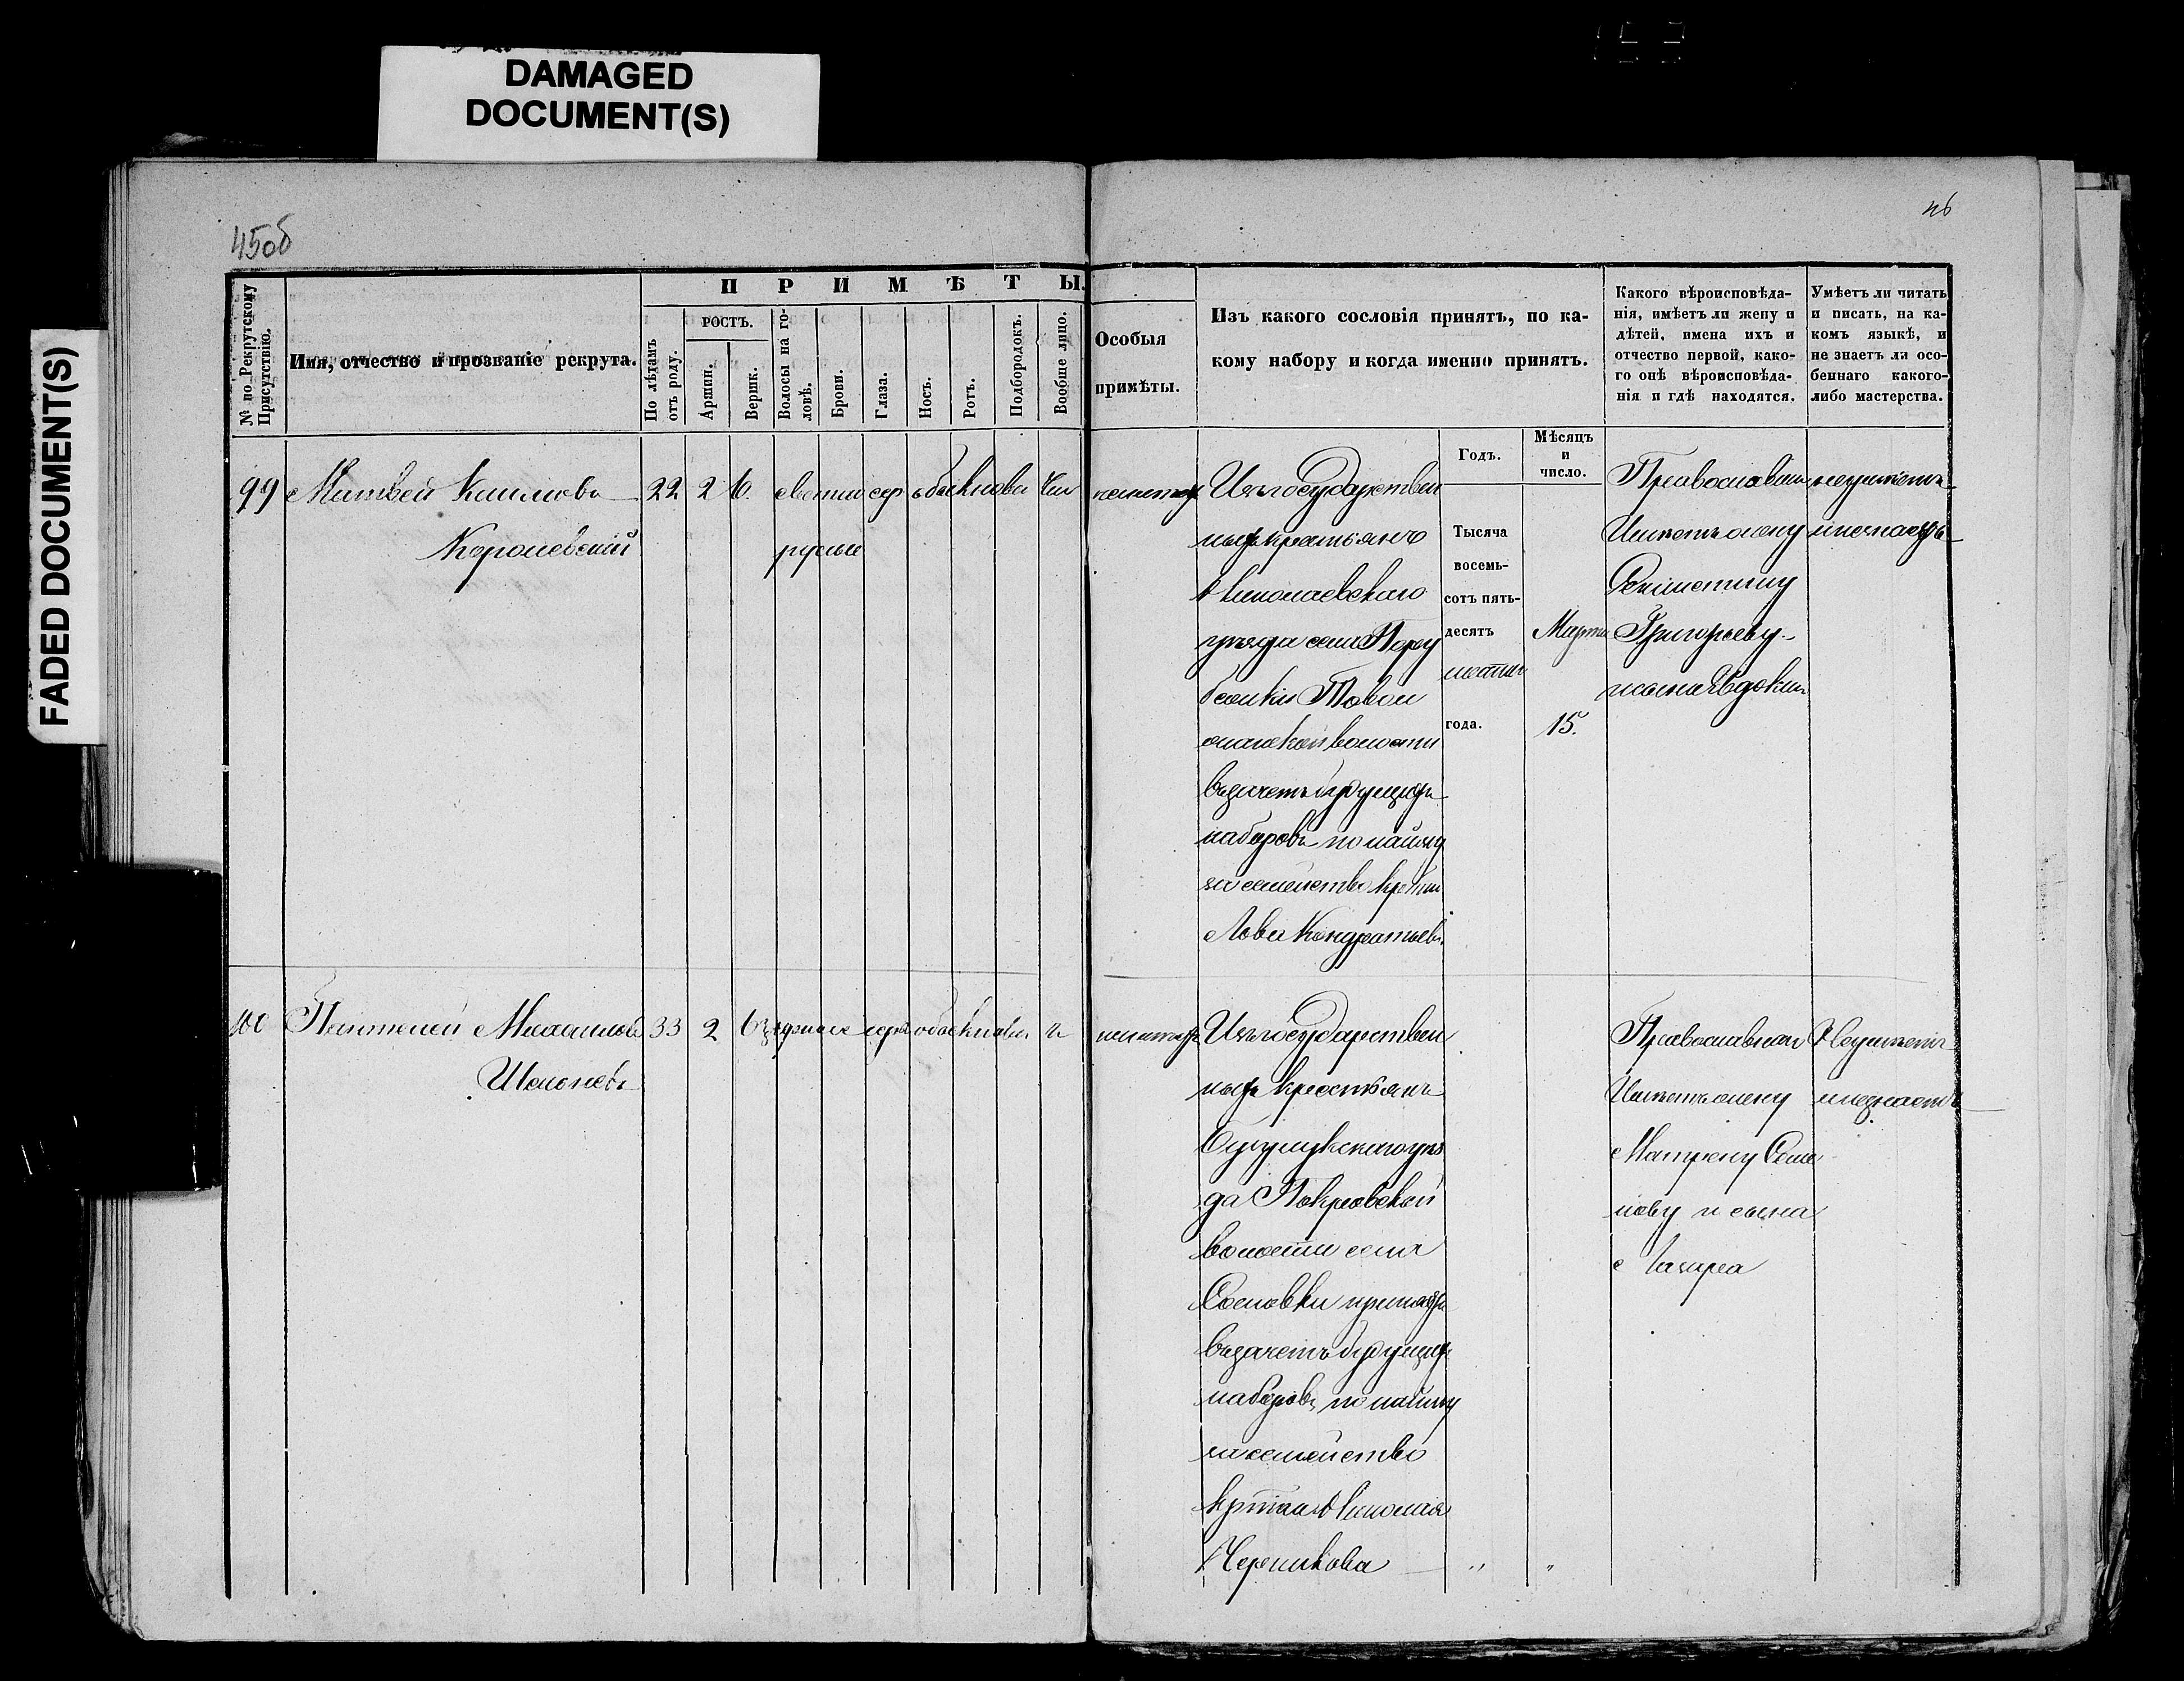 DAMAGED
DOCUMENT(S)
FADED DOCUMENT(S)
45об
46
№ по Рекрутскому Присутствію.
Имя, отчество и прозваніе рекрута.
ПРИМѢТЫ.
По лѣтамъ отъ роду.
РОСТЪ.
Аршин.
Вершк.
Волосы на головѣ.
Брови.
Глаза.
Носъ.
Ротъ.
Подбородокъ.
Вообще лицо.
Особыя
примѣты.
Изъ какого сословія принятъ, по ка-
кому набору и когда именно принятъ.
Какого вѣроисповѣда-
нія, имѣетъ ли жену и
дѣтей, имена ихъ и
отчество первой, како-
го онѣ вѣроисповѣда-
нія и гдѣ находятся.
Умѣетъ ли читать
и писать, на ка-
комъ языкѣ, и
не знаетъ ли осо-
беннаго какого-
либо мастерства.
Годъ.
Мѣсяцъ
и
число.
99 Матвей
Королевскій
22 2 6 светло сер обыкновен
русые
Изъ государствен
ныхъ крестьянъ
Николаевскаго
уѣзда села Пору
бежки
волости
въ зачетъ будущихъ
наборовъ по найму
за семейство
Кондратьева
Тысяча
восемь-
сотъ пять-
десятъ
шестаго
года.
Марта
15.
Православнаго
Имѣетъ жену
Григорьеву
и сына Евдокима
неумѣетъ
и незнаетъ
100 Пантелей Михайловъ
33 2 6 ½ черные серы обыкновен ч
Изъ государствен
ныхъ крестьянъ
Бузулукскаго уѣз
да Покровской
волости села
Сосновки принятъ
въ зачетъ будущихъ
наборовъ по найму
за семейство
Николая
Черникова
" "
Православнаго
Имѣетъ жену
Матрену Семе
нову и сына
Лазаря
Неумѣетъ
и незнаетъ